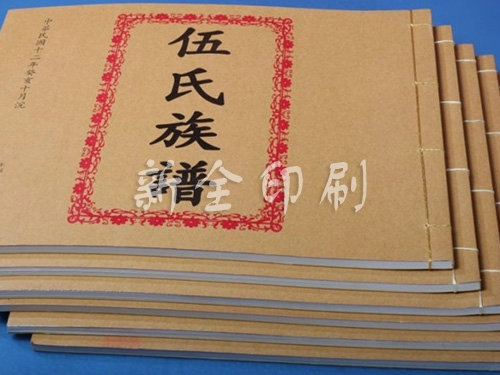 伍氏族譜
中華民國十二年癸亥十月沅
新全印刷